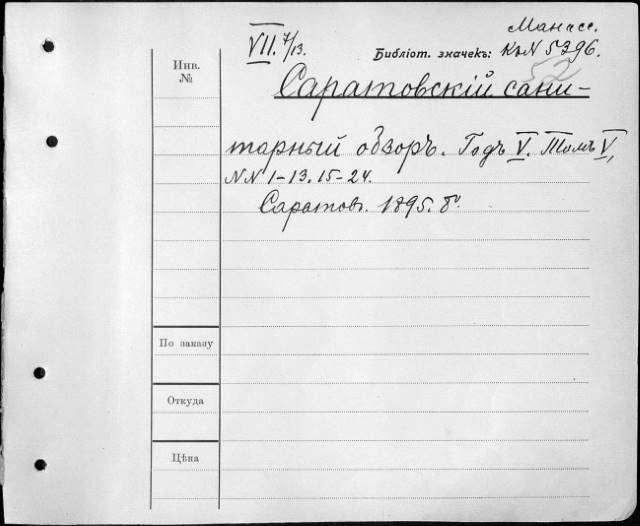 Манасс.
VII. 7/13.
Библіот. значекъ: К. N 5396.
52
Инв.
№
Саратовскій сани-
тарный обзоръ. Годъ V. Томъ V,
NN 1-13. 15-24.
Саратов. 1895. 8°.
По заказу
Откуда
Цѣна